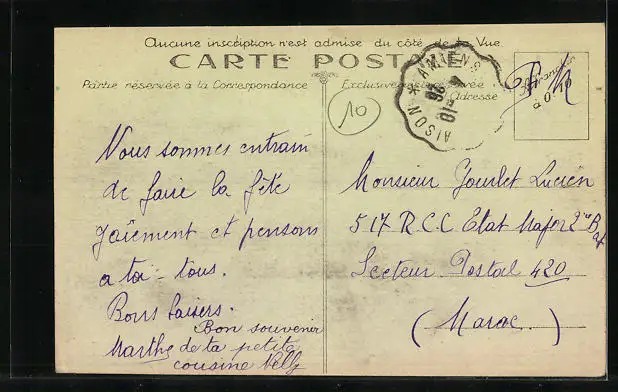 Aucune inscription n'est admise du côté de la Vue
CARTE POSTALE
Partie réservée à la Correspondance
Exclusivement
Adresse
à 0-10
10
AMIENS
F M
Nous sommes entrain
de faire la fête
gaîement et pensons
a toi - tous.
Bons baisers.
Bon souvenir
Marthe de ta petite
cousine Nelly
Monsieur Jourlet Lucien
517 R.C.C Etat Major 2me Bat
Secteur Postal 420
(Maroc.)